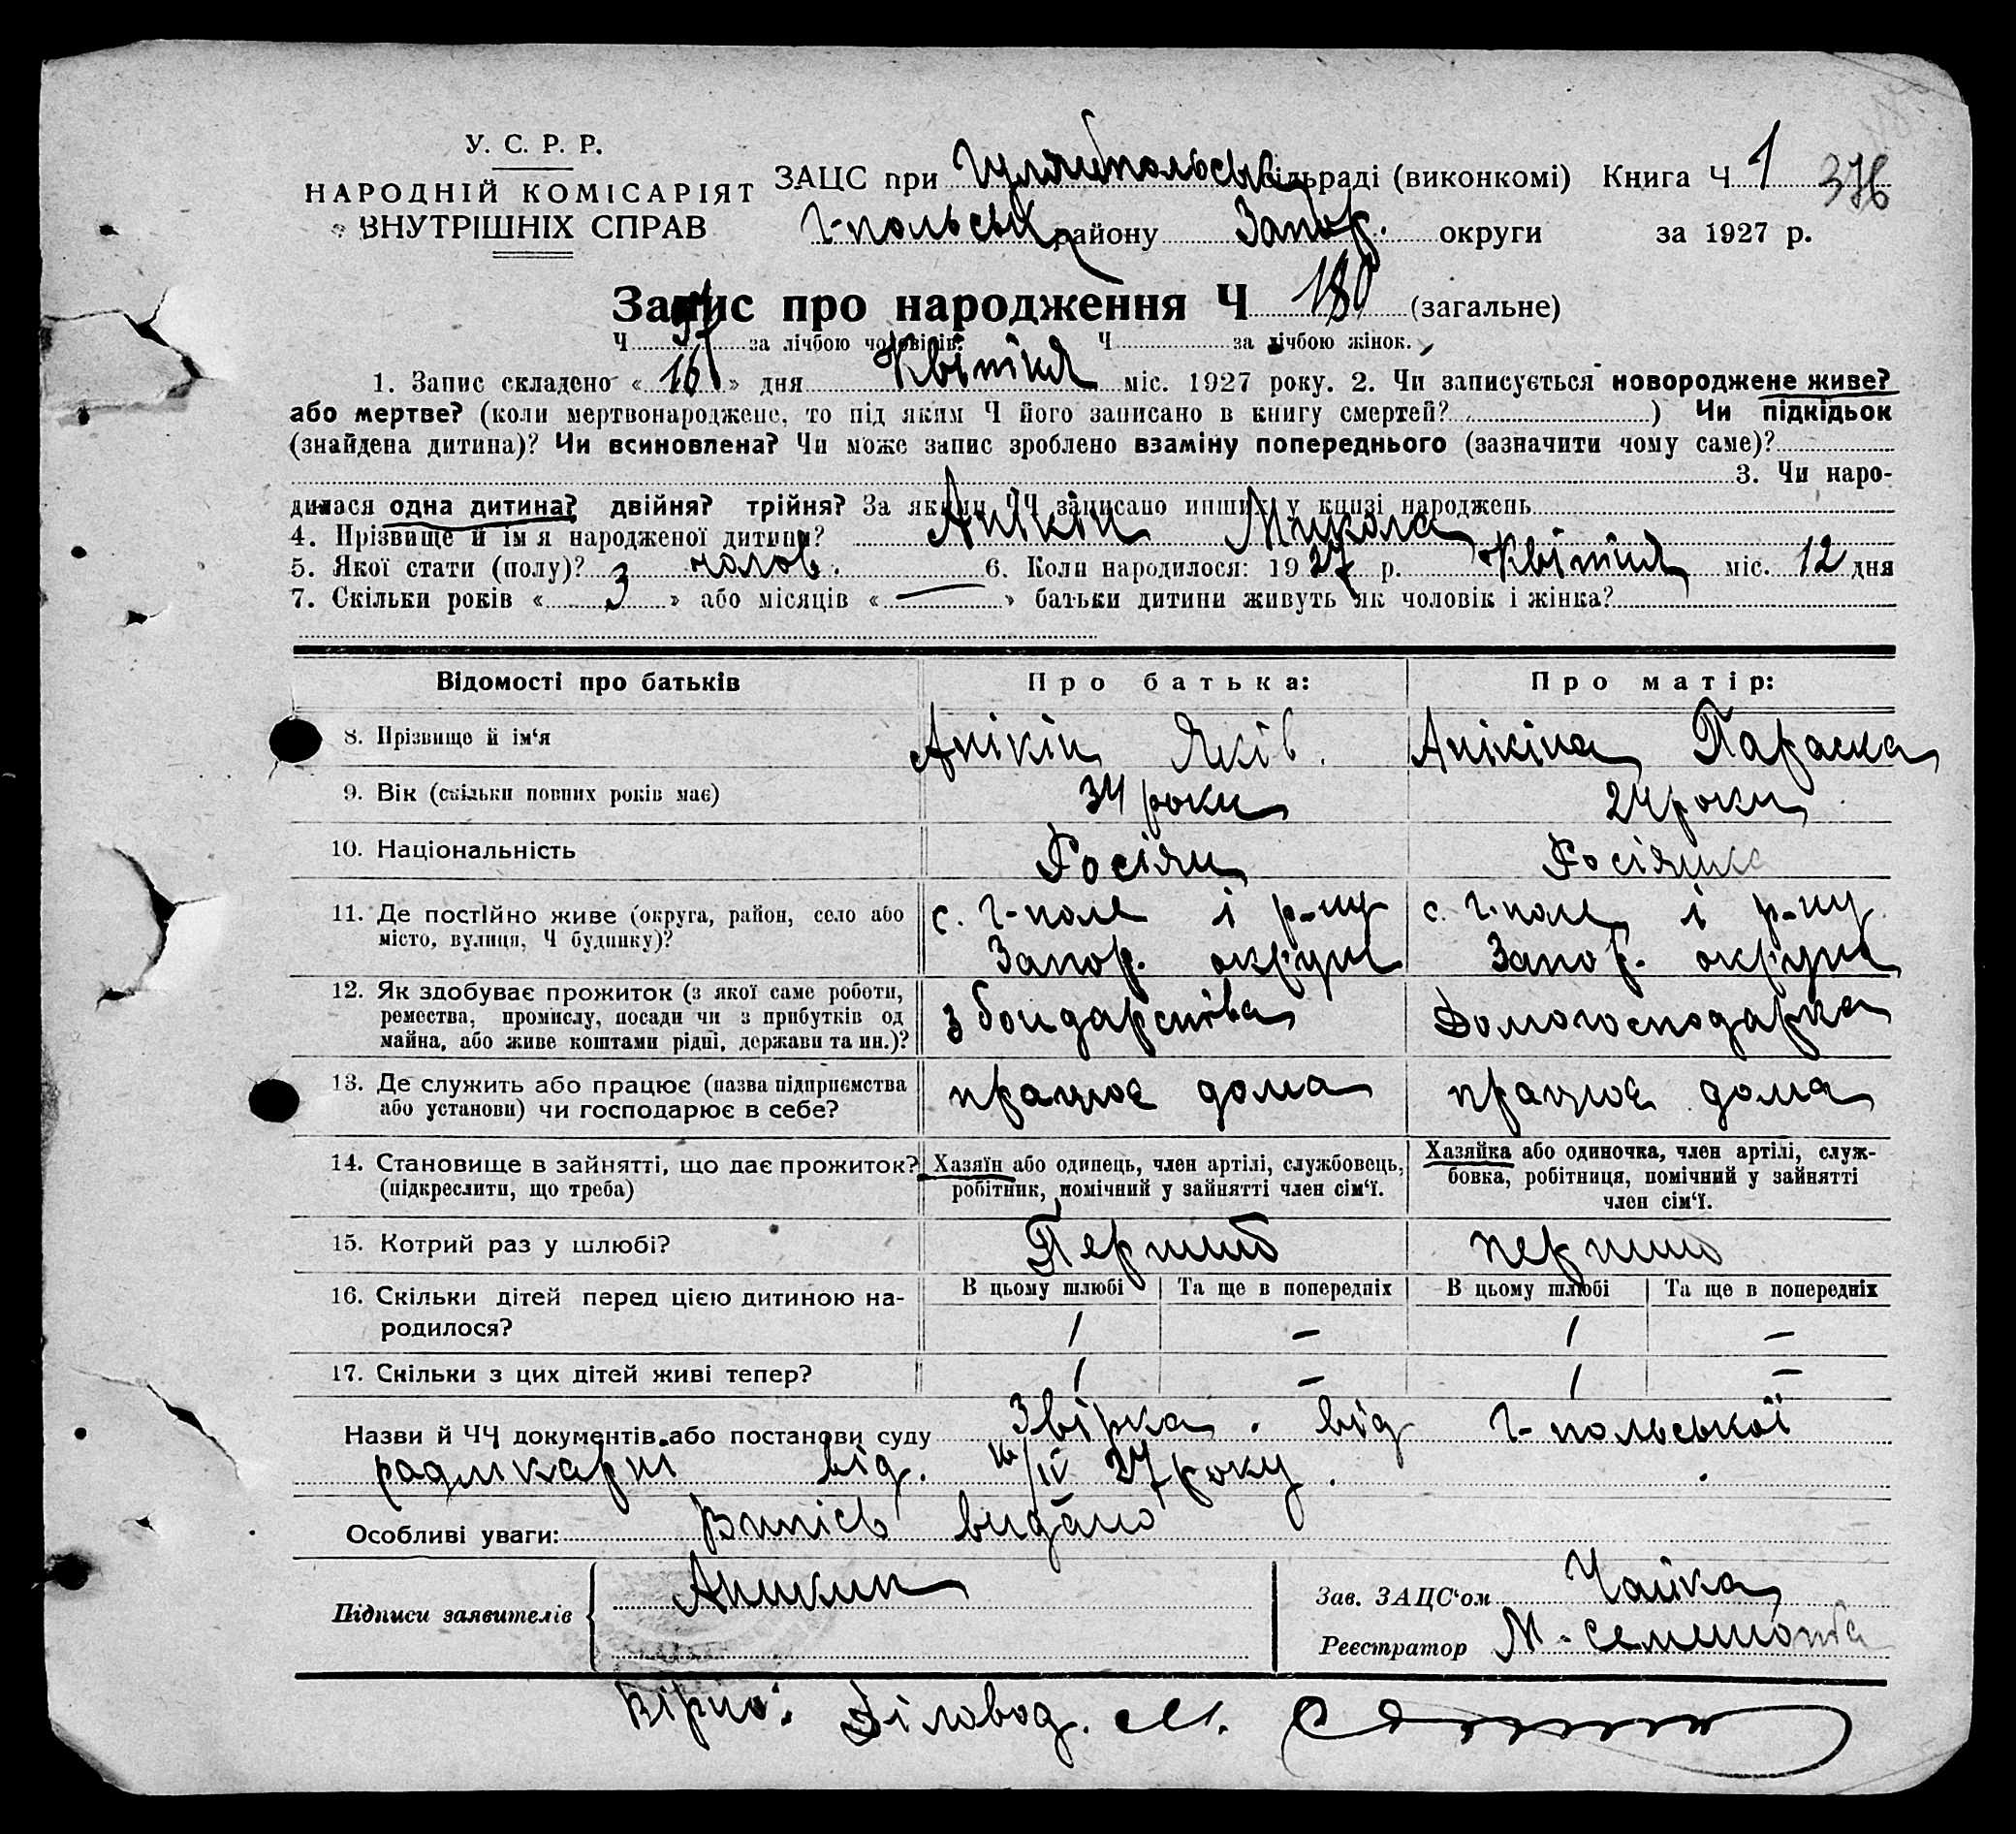 У. С. Р. Р.
НАРОДНІЙ КОМІСАРІЯТ
ВНУТРІШНІХ СПРАВ
ЗАЦС при Гуляйпольськ сільраді (виконкомі) Книга Ч 1 376
Г-польськ району Запор. округи за 1927 р.
Запис про народження Ч 180 (загальне)
Ч 97 за лічбою чоловіків. Ч за лічбою жінок.
1. Запис складено « 16 » дня Квітня міс. 1927 року. 2. Чи записується новороджене живе?
або мертве? (коли мертвонароджене, то під яким Ч його записано в книгу смертей? ) Чи підкідьок
(знайдена дитина)? Чи всиновлена? Чи може запис зроблено взаміну попереднього (зазначити чому саме)?
3. Чи наро-
дилася одна дитина? двійня? трійня? За якими ЧЧ записано инших у книзі народжень
4. Прізвище й ім я народженої дитини? Анікін Микола
5. Якої стати (полу)? З чолов. 6. Коли народилося: 1927 р. Квітня міс. 12 дня
7. Скільки років « 3 » або місяців « — » батьки дитини живуть як чоловік і жінка?
Відомості про батьків Про батька: Про матір:
8. Прізвище й ім‘я Анікін Яків. Анікіна Параска
9. Вік (скільки повних років має) 34 роки 24 роки
10. Національність Росіян Росіянка
11. Де постійно живе (округа, район, село або с. Г-поле і р-ну с. Г-поле і р-ну
місто, вулиця, Ч будинку)? Запор. округи Запор. округи
12. Як здобуває прожиток (з якої саме роботи,
ремества, промислу, посади чи з прибутків од з бондарства Домогосподарка
майна, або живе коштами рідні, держави та ин.)?
13. Де служить або працює (назва підприємства працює дома працює дома
або установи) чи господарює в себе?
14. Становище в зайнятті, що дає прожиток? Хазяїн або одинець, член артілі, службовець, Хазяйка або одиночка, член артілі, служ-
(підкреслити, що треба) робітник, помічний у зайнятті член сім‘ї. бовка, робітниця, помічний у зайнятті
член сім‘ї.
15. Котрий раз у шлюбі? Перший перший
16. Скільки дітей перед цією дитиною на- В цьому шлюбі Та ще в попередніх В цьому шлюбі Та ще в попередніх
родилося? 1 – 1 –
17. Скільки з цих дітей живі тепер? 1 – 1 –
Назви й ЧЧ документів або постанови суду Звірка від Г-польської
радлікарні від. /IV 27 року.
Особливі уваги: Випись видано
Підписи заявителів Аникин
Зав. ЗАЦС‘ом Чайка
Реєстратор М.
Вірно: Діловод. М.